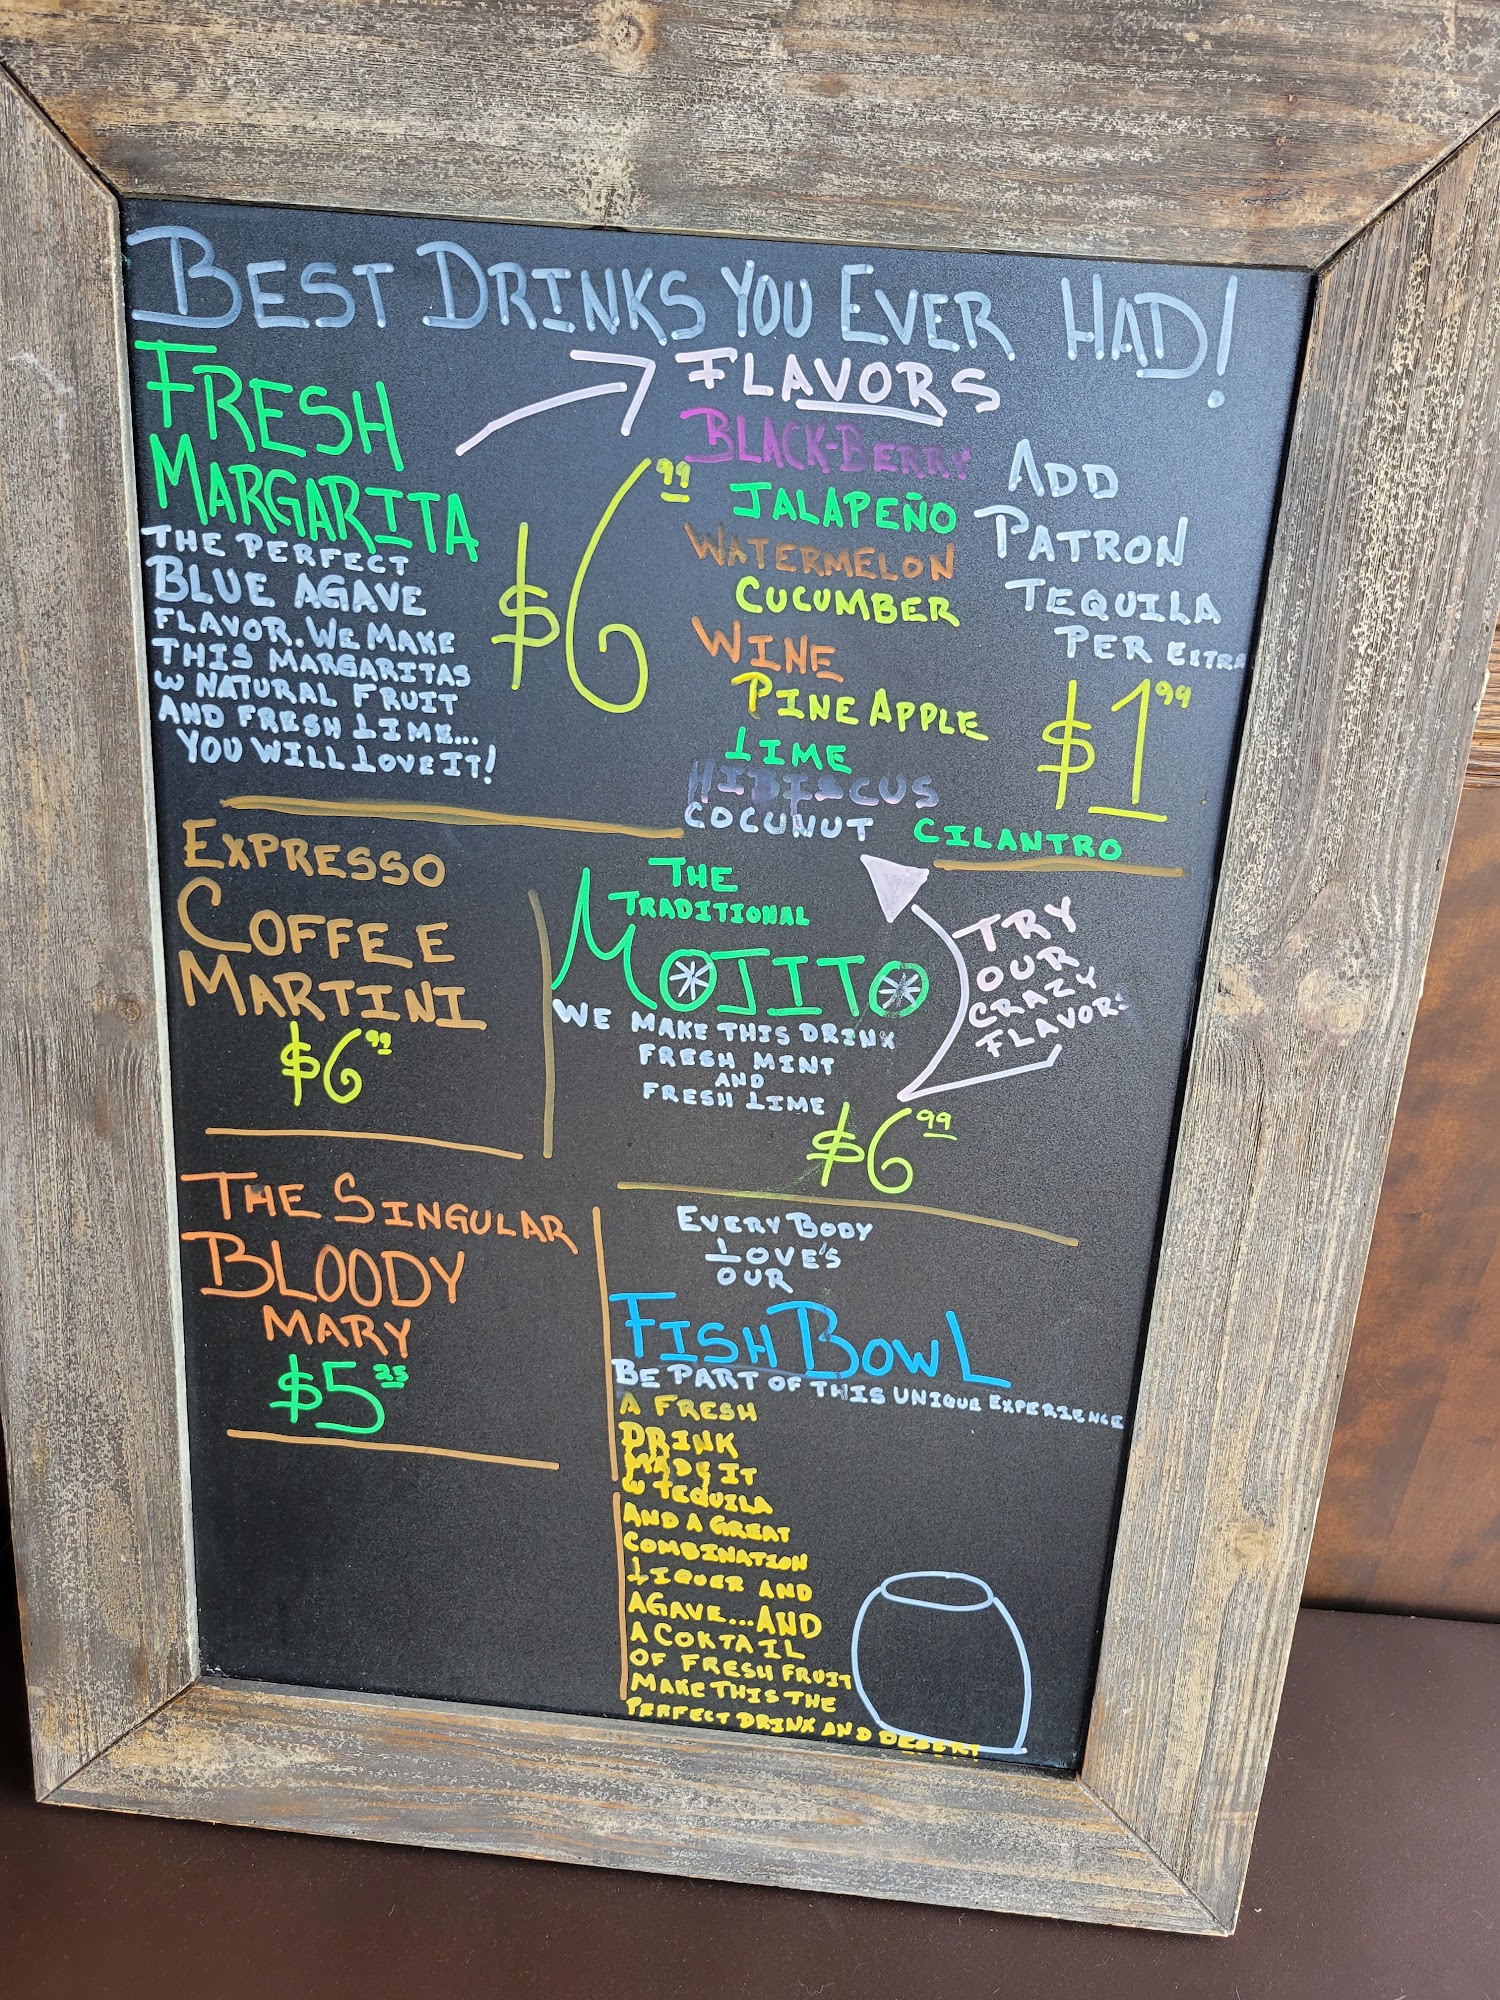 BEST DRINKS YOU EVER HAD!
FRESH
MARGARITA
THE PERFECT
BLUE AGAVE
FLAVOR. WE MAKE
THIS MARGARITAS
W NATURAL FRUIT
AND FRESH LIME...
YOU WILL LOVE IT!
$6.99
FLAVORS
BLACK-BERRY
JALAPEÑO
WATERMELON
CUCUMBER
WINE
PINE APPLE
LIME
HIBISCUS
COCUNUT
CILANTRO
ADD
PATRON
TEQUILA
PER EXTRA
$1.99
EXPRESSO
COFFEE
MARTINI
$6.99
THE
TRADITIONAL
MOJITO
WE MAKE THIS DRINK
FRESH MINT
AND
FRESH LIME
$6.99
TRY
OUR
CRAZY
FLAVORS
THE SINGULAR
BLOODY
MARY
$5.25
EVERY BODY
LOVE'S
OUR
FISH BOWL
BE PART OF THIS UNIQUE EXPERIENCE
A FRESH
DRINK
MADE IT
W TEQUILA
AND A GREAT
COMBINATION
LIQUER AND
AGAVE...AND
A COKTAIL
OF FRESH FRUIT
MAKE THIS THE
PERFECT DRINK AND DESERT